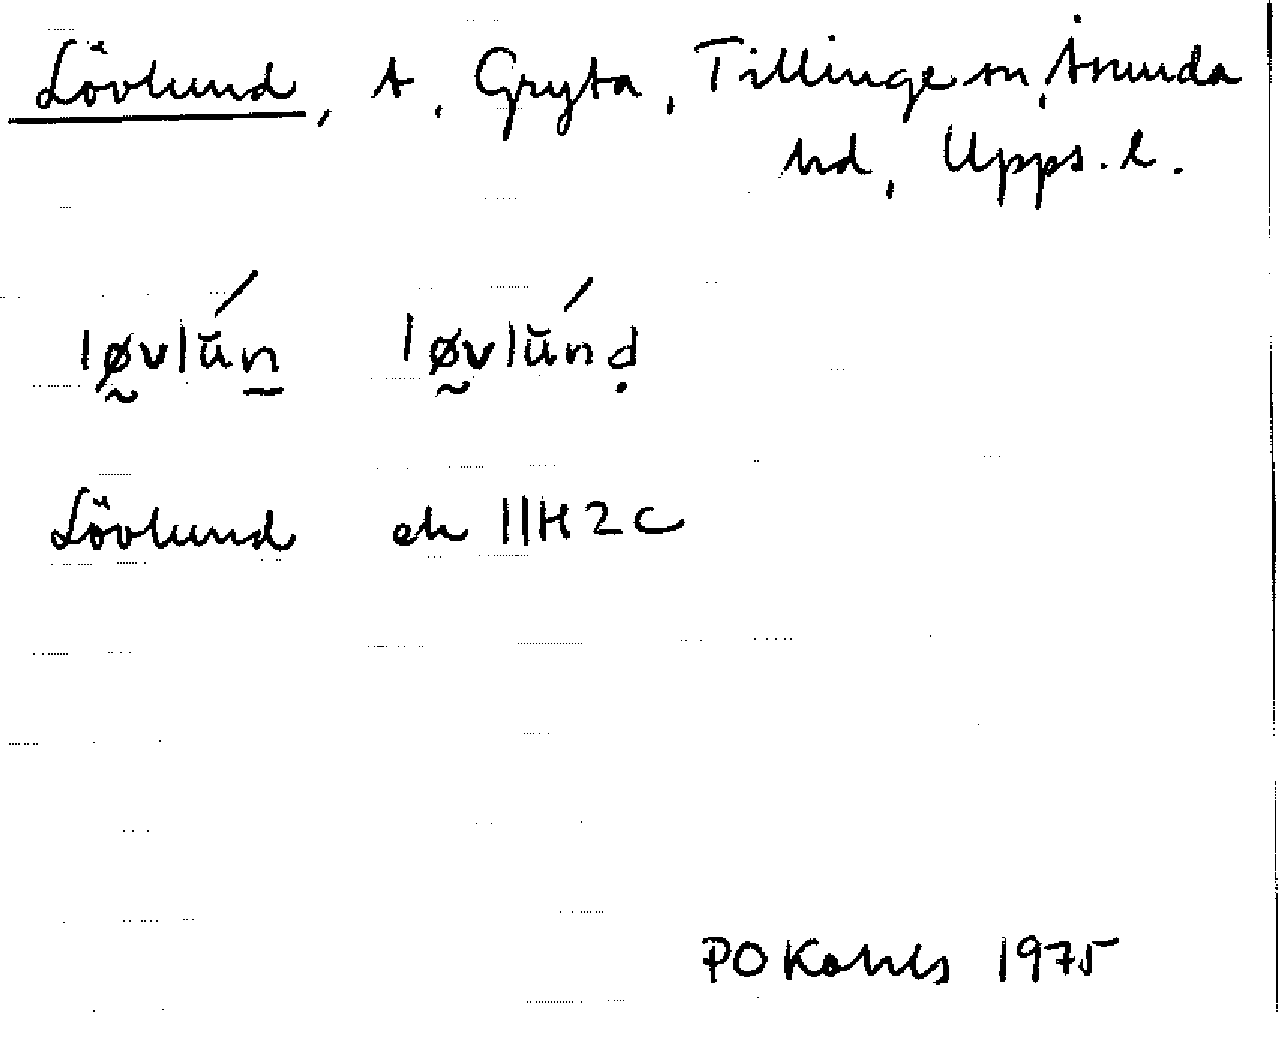 Lövlund, t, Gryta, Tillinge sn, Åsunda
hd, Upps. l.
løvlŭn løvlŭnd
Lövlund ek 11H2c
1975